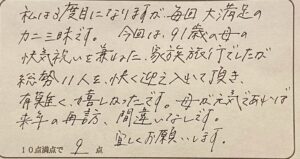 私は3度目になりますが毎回大満足の
カニ三昧です。今回は、91歳の母の
快気祝いを兼ねた、家族旅行でしたが
総勢11人を、快く迎え入れて頂き、
有難く、嬉しかったです。母が元気であれば
来年の再訪、間違いなしです。
宜しくお願いします。
10点満点で 9 点